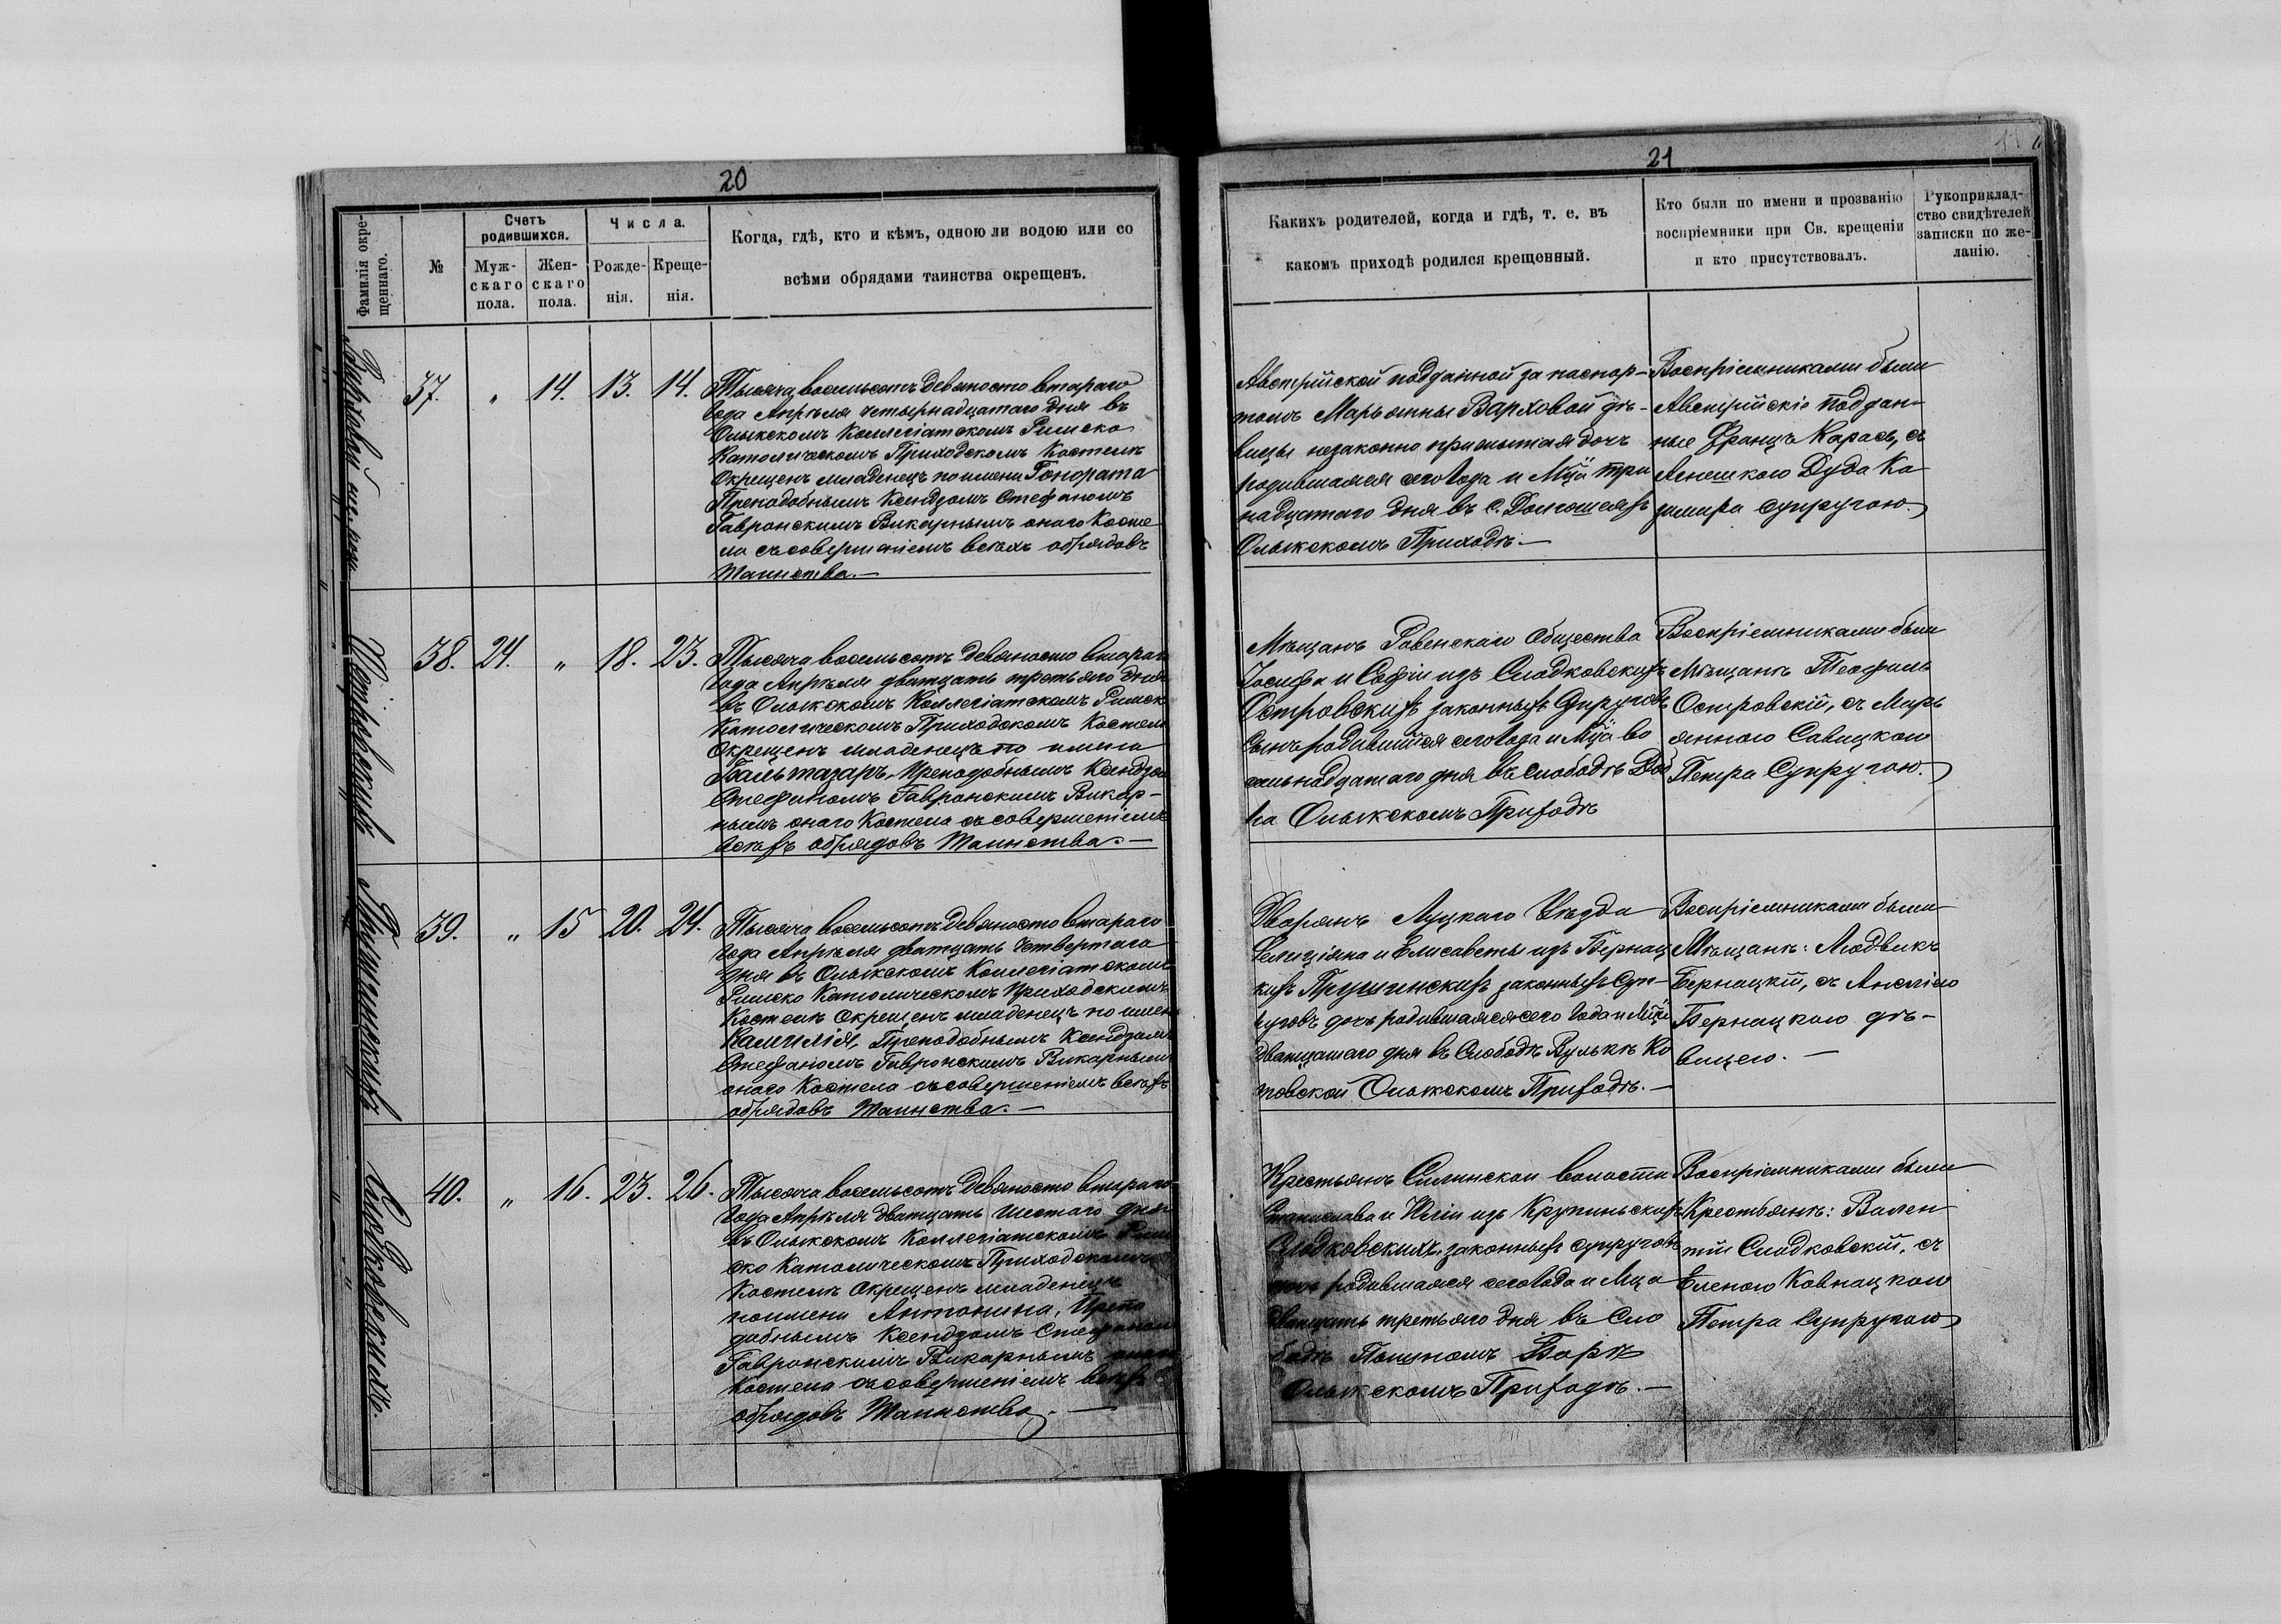 20
Фамилія окре-
щеннаго.
№
Счетъ
родившихся.
Муж-
скаго
пола.
Жен-
скаго
пола.
Числа.
Рожде-
нія.
Креще-
нія.
Когда, гдѣ, кто и кѣмъ, одною ли водою или со
всѣми обрядами таинства окрещенъ.
Варховой
37.
"
14.
13.
14.
Тысяча восемьсотъ девяносто втараго
года Апрѣля четырнадцатаго дня въ
Олыкскомъ Коллегіатскомъ Римско
Католическомъ Приходскомъ Костелѣ
Окрещенъ младенецъ по имени Гонората
Преподобнымъ Ксендзомъ Стефаномъ
Гавронскимъ Викарнымъ онаго Косте
ла съ совершеніемъ всѣхъ обрядовъ
Таинства.—
Островскихъ
38.
24.
"
18.
23.
Тысяча восемьсотъ девяносто втараго
года Апрѣля дватцать третьяго дня
въ Олыкскомъ Коллегіатскомъ Римск
Католическомъ Приходскомъ Костел
Окрещенъ младенецъ по имени
Бальтазаръ, Преподобнымъ Ксендзом
Стефаномъ Гавронскимъ Викар-
нымъ онаго Костела съ совершеніемъ
всѣхъ обрядовъ Таинства.—
Прушинскихъ
39.
"
15
20.
24.
Тысяча восемьсотъ девяносто втараго
года Апрѣля дватцать четвертаго
дня въ Олыкскомъ Коллегіатскомъ
Римско Католическомъ Приходскомъ
Костелѣ Окрещенъ младенецъ по имен
Камилія, Преподобнымъ Ксендзомъ
Стефаномъ Гавронскимъ Викарным
онаго Костела съ совершеніемъ всѣхъ
обрядовъ Таинства.—
Сладковскихъ.
40.
"
16.
23.
26.
Тысяча восемьсотъ девяносто втараго
года Апрѣля дватцать шестаго дня
въ Олыкскомъ Коллегіатскомъ Рим
ско Католическомъ Приходскомъ
Костелѣ Окрещенъ младенецъ
по имени Антонина, Препо
добнымъ Ксендзомъ Стефаном
Гавронскимъ Викарнымъ онаго
Костела съ совершеніемъ всѣхъ
обрядовъ Таинства.—
21
Какихъ родителей, когда и гдѣ, т. е. въ
какомъ приходѣ родился крещенный.
Кто были по имени и прозванію
воспріемники при Св. крещеніи
и кто присутствовалъ.
Рукоприклад-
ство свидѣтелей
записки по же-
ланію.
Австрійской подданной за паспор-
томъ Марьянны Варховой дѣ-
вицы незаконно прижытая дочъ
родившаяся сего года и Мца три
надцатаго дня въ с. Долгошеяхъ
Олыкскомъ Приходѣ.—
Воспріемниками были
Австрійскіе Поддан-
ные Францъ Карась, съ
Агнешкою Дуда Ка
зимира супругою.
Мѣщанъ Ровенскаго Общества
Іосифа и Софіи изъ Сладковскихъ
Островскихъ законныхъ Супруговъ
Сынъ родившійся сего года и Мца во
семьнадцатаго дня въ Слободѣ Доб
ра Олыкскомъ Приходѣ
Воспріемниками были
Мѣщане Теофиль
Островскій, съ Марь
янною Савицкою
Петра Супругою.
Дворянъ Луцкаго Уѣзда
Фелиціана и Елисаветы изъ Бернац
кихъ Прушинскихъ законныхъ Суп-
руговъ дочъ родившаяся сего года и Мца
дватцатаго дня въ Слободѣ Вулькѣ Ко
товской Олыкскомъ Приходѣ.—
Воспріемниками были
Мѣщане: Людвикъ
Бернацкій, съ Анеліею
Бернацкою дѣ-
вицею.—
Крестьянъ Силинской волости
Станислава и Юліи изъ Крупиньскихъ
Сладковскихъ, законныхъ супруговъ
дочъ родившаяся сего года и Мца
дватцать третьяго дня въ Сло
бодѣ Пышномъ Боркѣ
Олыкскомъ Приходѣ.—
Воспріемниками были
Крестьяне: Вален
тій Сладковскій, съ
Еленою Ковнацкою
Петра Супругою